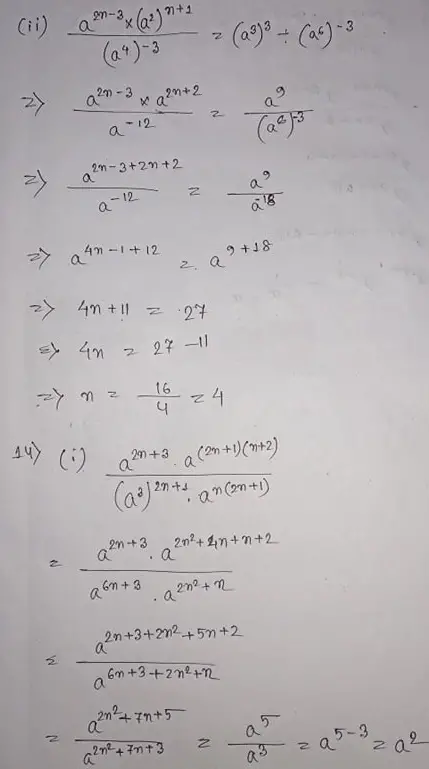 (ii) (a^(2n-3) × (a²)^(n+1)) / (a⁴)^(-3) = (a³)³ ÷ (a⁶)^(-3)
=> (a^(2n-3) × a^(2n+2)) / a^(-12) = a⁹ / (a⁶)^(-3)
=> a^(2n-3+2n+2) / a^(-12) = a⁹ / a^(-18)
=> a^(4n-1+12) = a^(9+18)
=> 4n+11 = 27
=> 4n = 27-11
=> n = 16/4 = 4
14) (i) (a^(2n+3) · a^((2n+1)(n+2))) / ((a³)^(2n+1) · a^(n(2n+1)))
= (a^(2n+3) · a^(2n²+4n+n+2)) / (a^(6n+3) · a^(2n²+n))
= a^(2n+3+2n²+5n+2) / a^(6n+3+2n²+n)
= a^(2n²+7n+5) / a^(2n²+7n+3) = a⁵ / a³ = a^(5-3) = a²